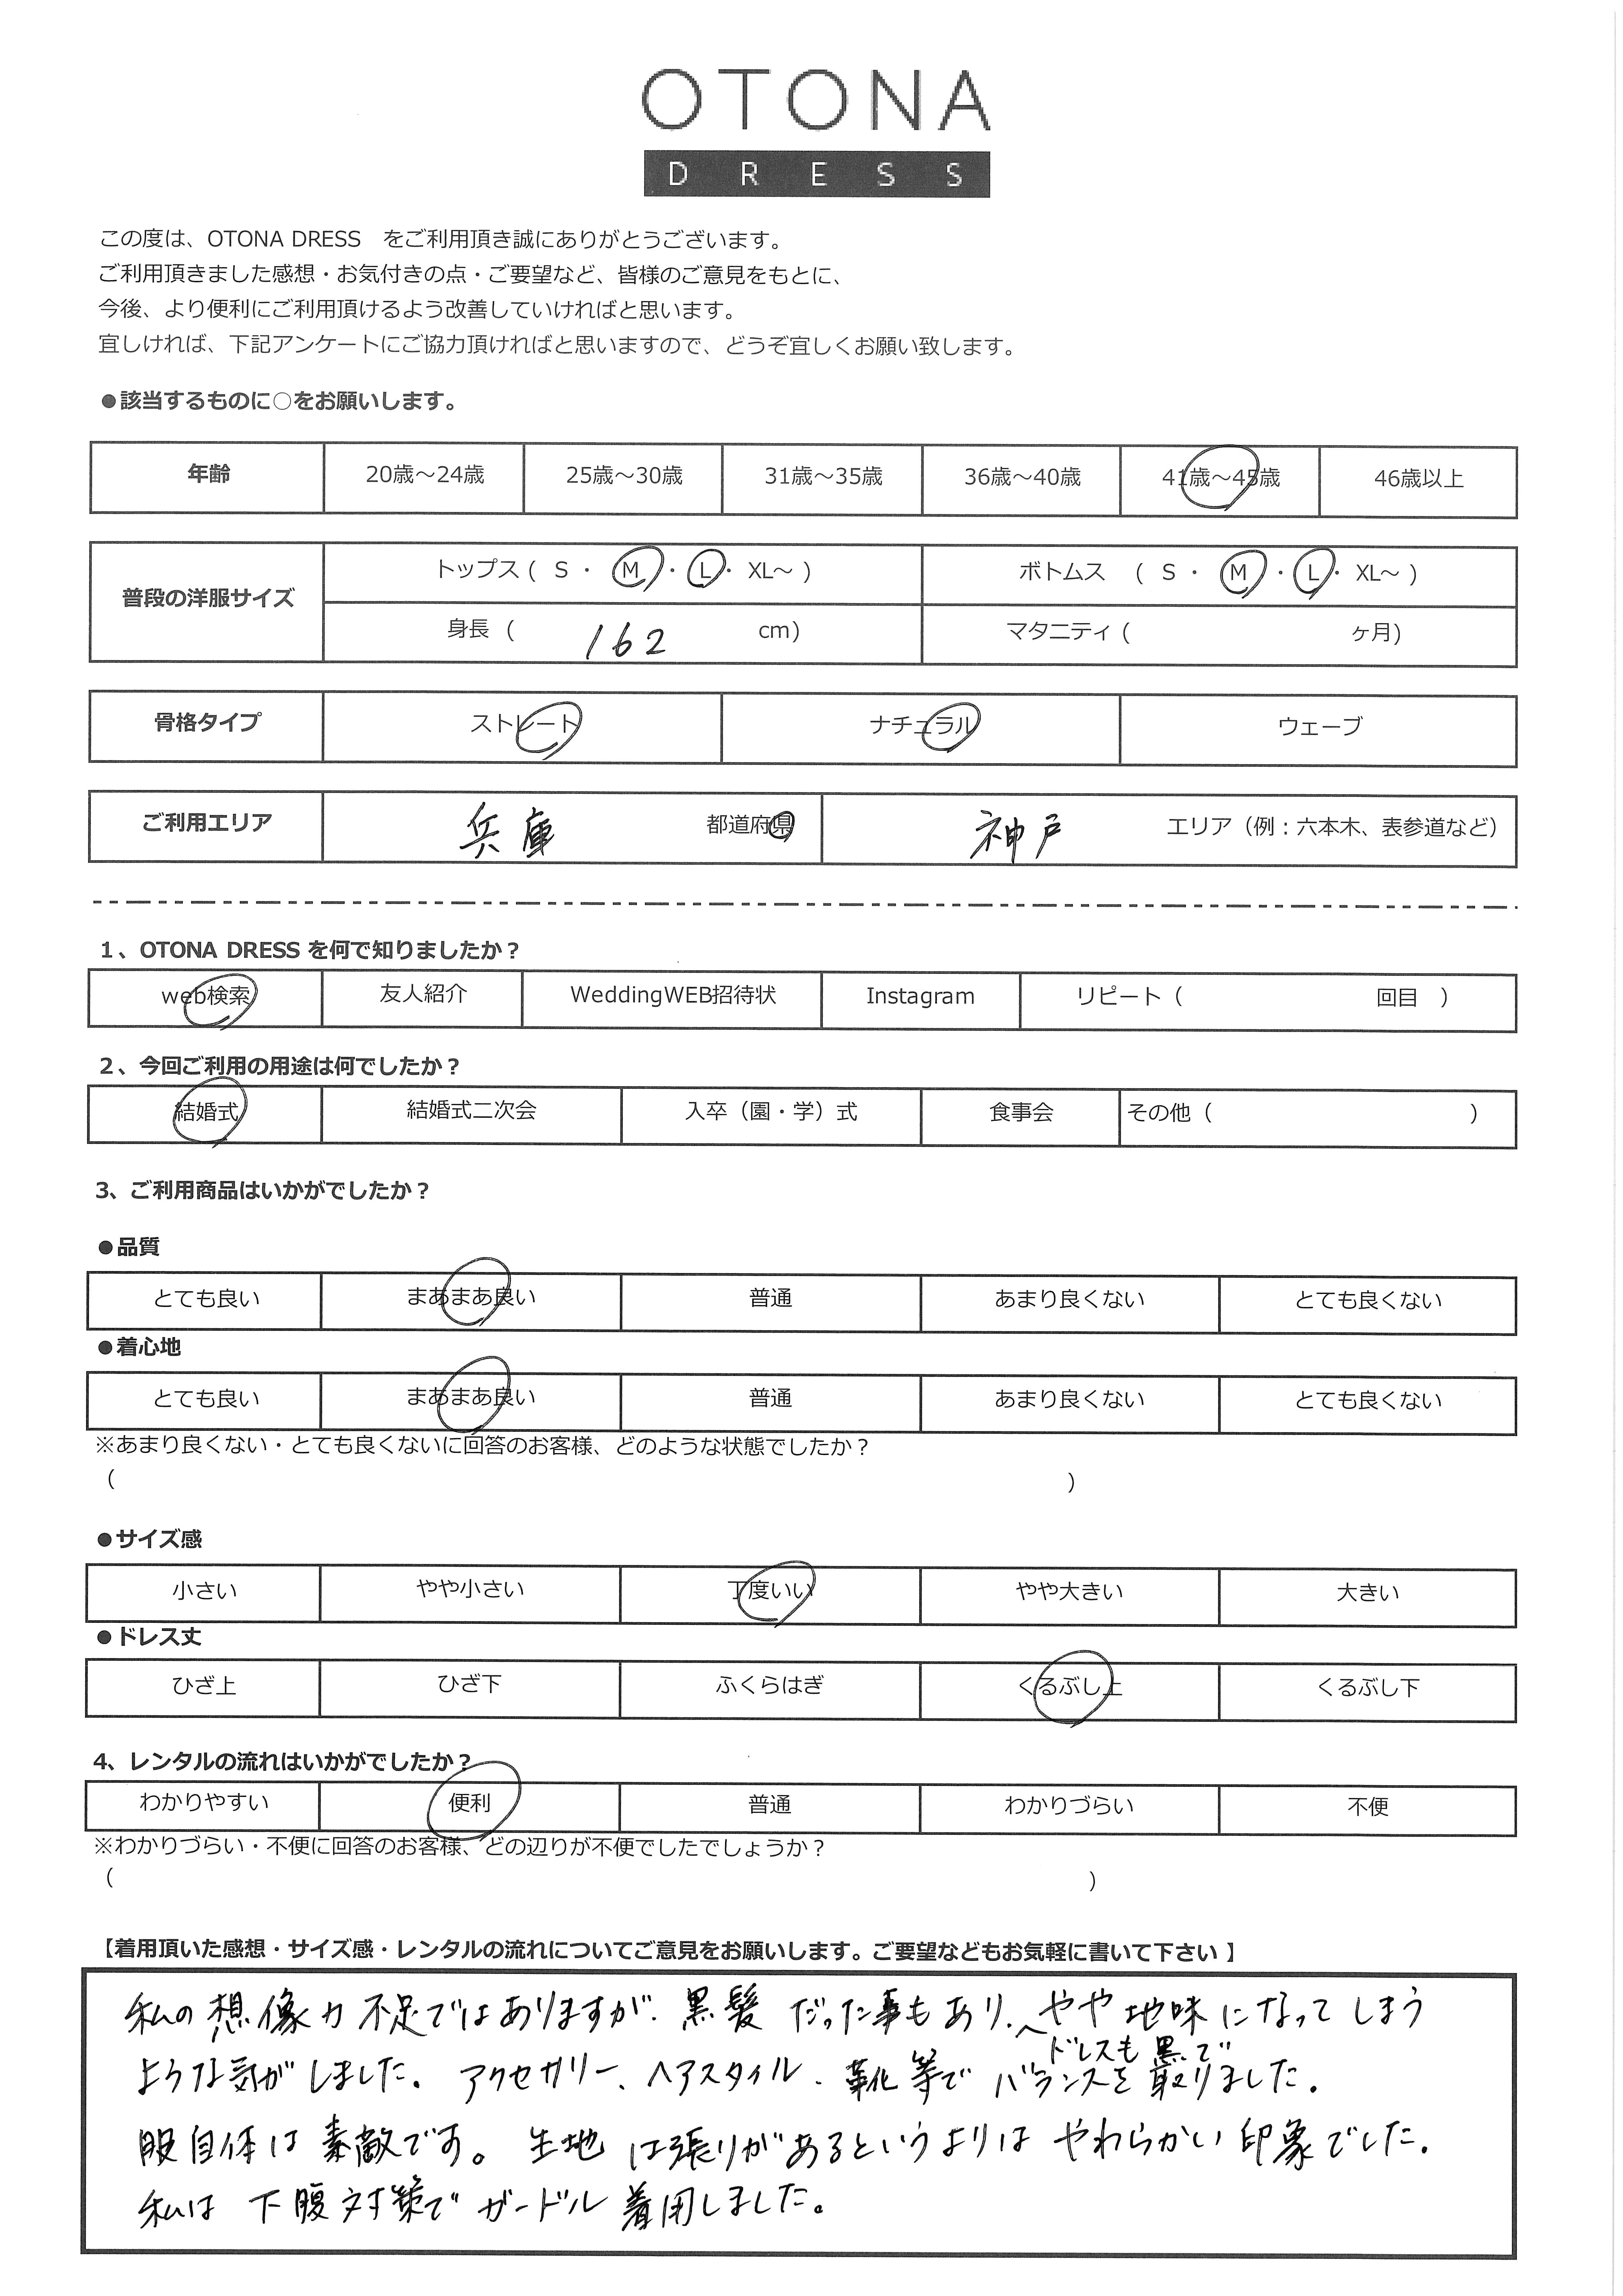 OTONA
DRESS
この度は、OTONA DRESS　をご利用頂き誠にありがとうございます。
ご利用頂きました感想・お気付きの点・ご要望など、皆様のご意見をもとに、
今後、より便利にご利用頂けるよう改善していければと思います。
宜しければ、下記アンケートにご協力頂ければと思いますので、どうぞ宜しくお願い致します。
●該当するものに○をお願いします。
年齢 20歳～24歳 25歳～30歳 31歳～35歳 36歳～40歳 41歳～45歳 46歳以上
普段の洋服サイズ トップス ( S ・ M ・ L ・ XL～ ) ボトムス ( S ・ M ・ L ・ XL～ )
身長 ( 162 cm) マタニティ ( ヶ月)
骨格タイプ ストレート ナチュラル ウェーブ
ご利用エリア 兵庫 都道府県 神戸 エリア（例：六本木、表参道など）
1、OTONA DRESS を何で知りましたか？
web検索 友人紹介 WeddingWEB招待状 Instagram リピート（ 回目 ）
2、今回ご利用の用途は何でしたか？
結婚式 結婚式二次会 入卒（園・学）式 食事会 その他（ ）
3、ご利用商品はいかがでしたか？
●品質
とても良い まあまあ良い 普通 あまり良くない とても良くない
●着心地
とても良い まあまあ良い 普通 あまり良くない とても良くない
※あまり良くない・とても良くないに回答のお客様、どのような状態でしたか？
（ ）
●サイズ感
小さい やや小さい 丁度いい やや大きい 大きい
●ドレス丈
ひざ上 ひざ下 ふくらはぎ くるぶし上 くるぶし下
4、レンタルの流れはいかがでしたか？
わかりやすい 便利 普通 わかりづらい 不便
※わかりづらい・不便に回答のお客様、どの辺りが不便でしたでしょうか？
（ ）
【着用頂いた感想・サイズ感・レンタルの流れについてご意見をお願いします。ご要望などもお気軽に書いて下さい 】
私の想像力不足ではありますが、黒髪だった事もあり、やや地味になってしまう
ドレスも黒で
ような気がしました。アクセサリー、ヘアスタイル、靴等でバランスを取りました。
服自体は素敵です。生地は張りがあるというよりはやわらかい印象でした。
私は下腹対策でガードル着用しました。